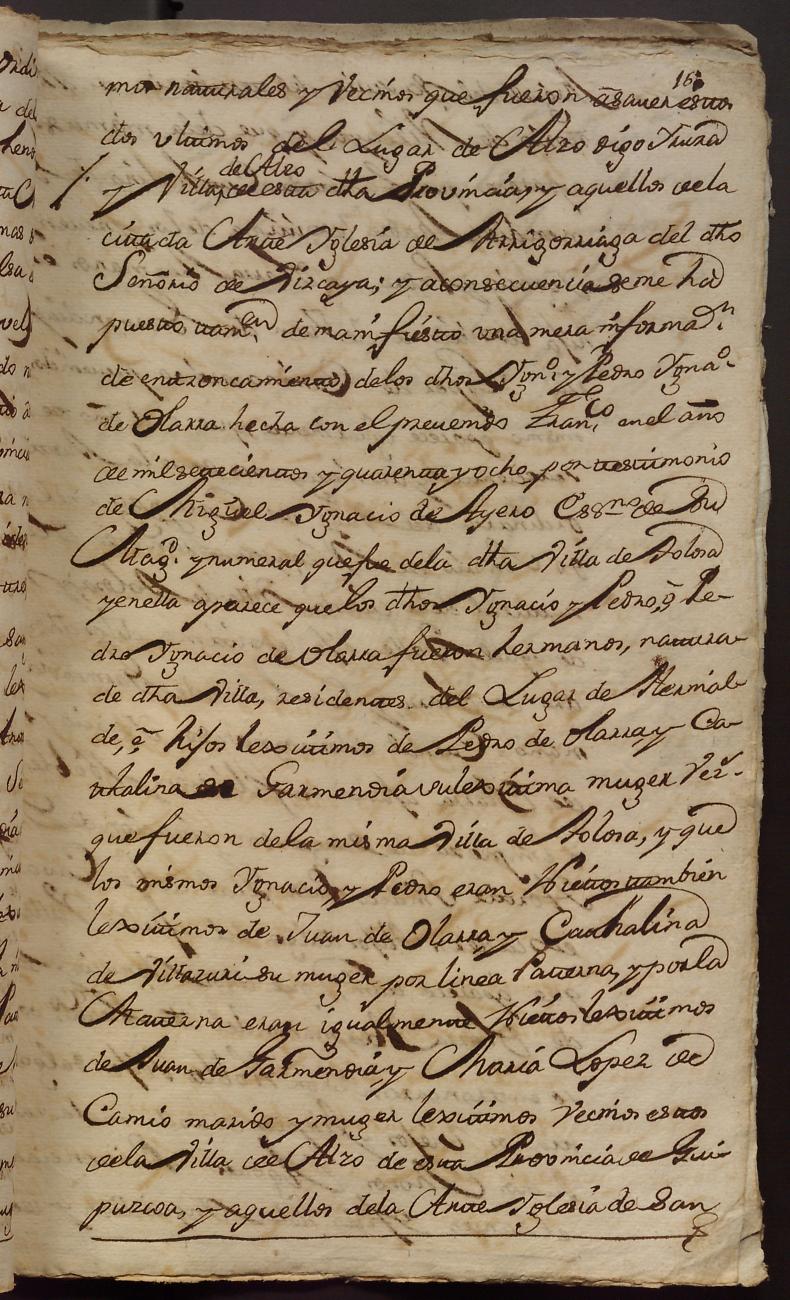 16
mos naturales y Vecinos que fueron asauer estos
dos vltimos del Lugar de Alzo digo Jurad
de Alzo
y Villa, de esta dha Provincia, y aquellos de la
citada Ante Yglesia de Arrigorriaga del dho
Señorio de Vizcaya; y a consecuencia se me ha
puesto tamen de manifiesto vna mera informaon
de entroncamiento de los dhos Ygno y Pedro Ygnao
de Olarra hecha con el prevenido Franco en el año
de mil setecientos y quarenta y ocho, por testimonio
de Miguel Ygnacio de Ayero Essno de Su
Magd. y numeral que fue de la dha Villa de Tolosa
y en ella aparece que los dhos Ygnacio y Pedro, õ Pe-
dro Ygnacio de Olarra fueron hermanos, natura-
de dha Villa, residentes del Lugar de Hernial-
de, é hijos lexitimos de Pedro de Olarra, y Ca-
thalina de Garmendia su lexitima muger Vezs.
que fueron de la misma Villa de Tolosa, y que
los mismos Ygnacio, y Pedro eran Nietos tambien
lexitimos de Juan de Olarra y Cathalina
de Villazuri su muger por linea Paterna, y por la
Materna eran igualmente Nietos lexitimos
de Juan de Garmendia, y Maria Lopez de
Camio marido y muger lexitimos Vecinos estos
de la Villa de Alzo de esta Provincia de Gui-
puzcoa, y aquellos de la Ante Yglesia de San